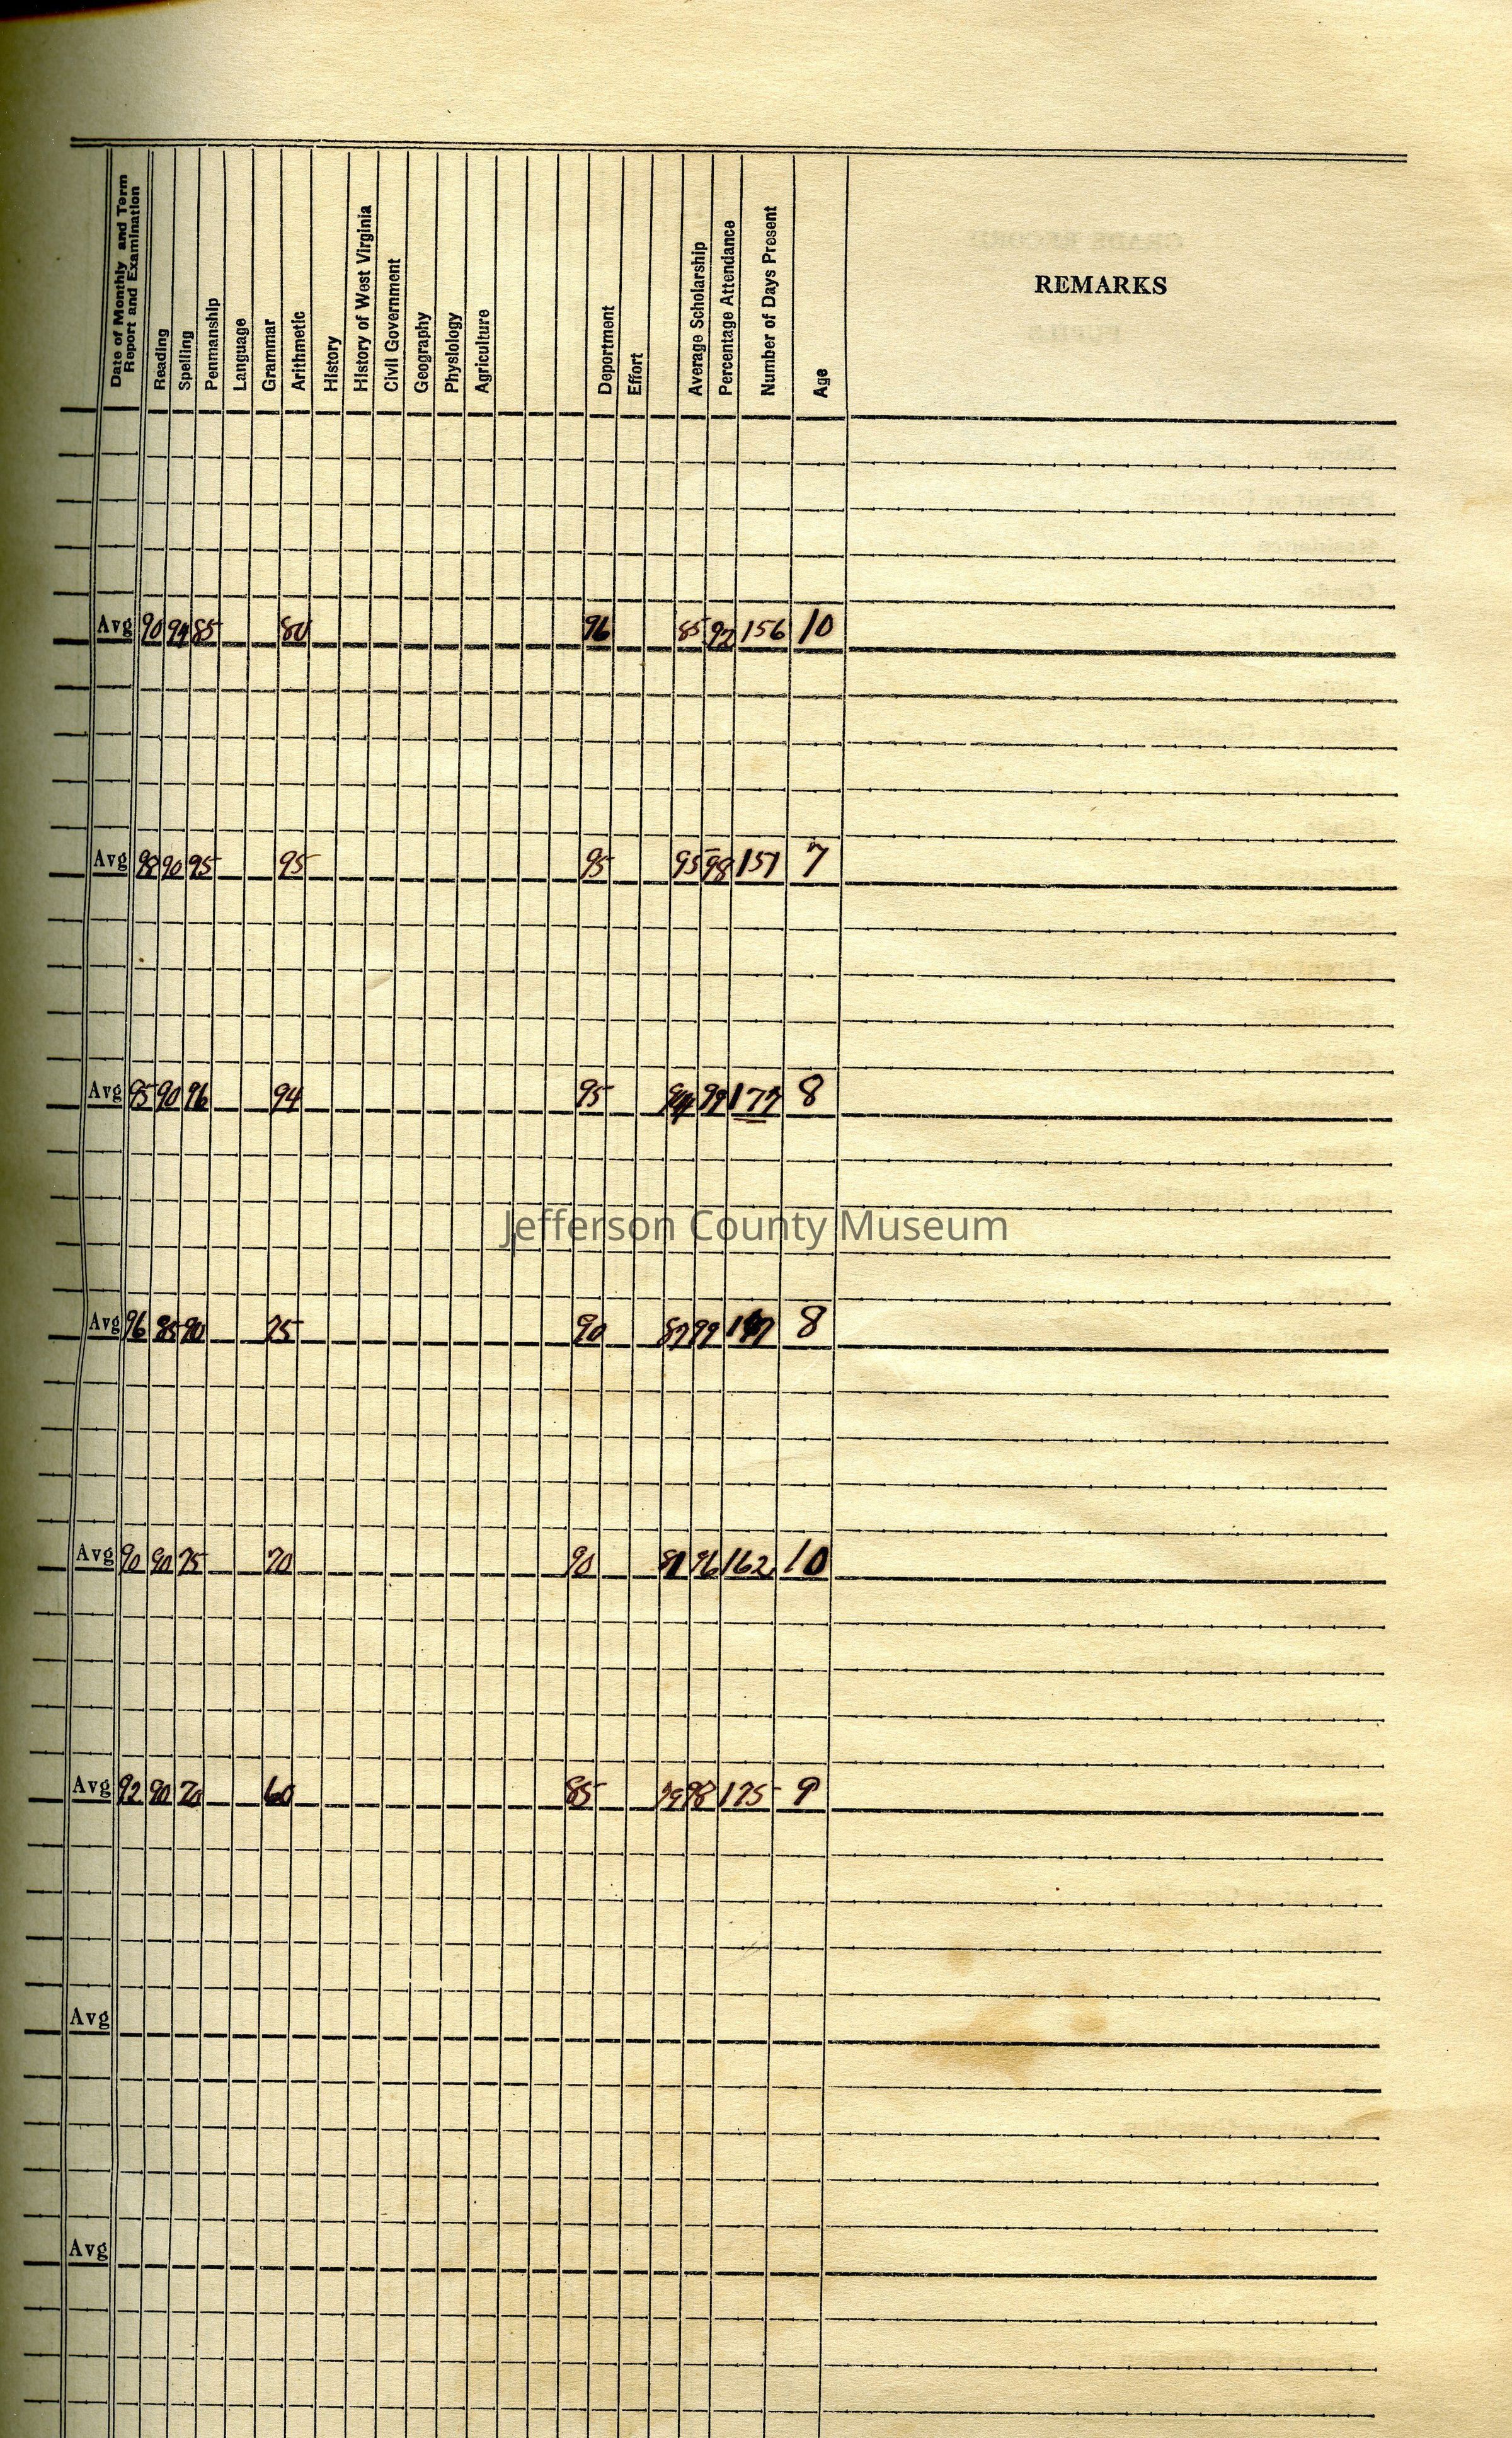 Date of Monthly and Term Report and Examination Reading Spelling Penmanship Language Grammar Arithmetic History History of West Virginia Civil Government Geography Physiology Agriculture Deportment Effort Average Scholarship Percentage Attendance Number of Days Present Age REMARKS
Avg 90 94 85 80 96 85 92 156 10
Avg 98 90 95 95 95 95 98 157 7
Avg 95 90 96 94 95 94 99 177 8
Avg 96 85 90 75 90 87 99 8
Avg 90 90 75 70 90 81 96 162 10
Avg 92 90 70 60 85 79 98 175 9
Avg
Avg
Jefferson County Museum